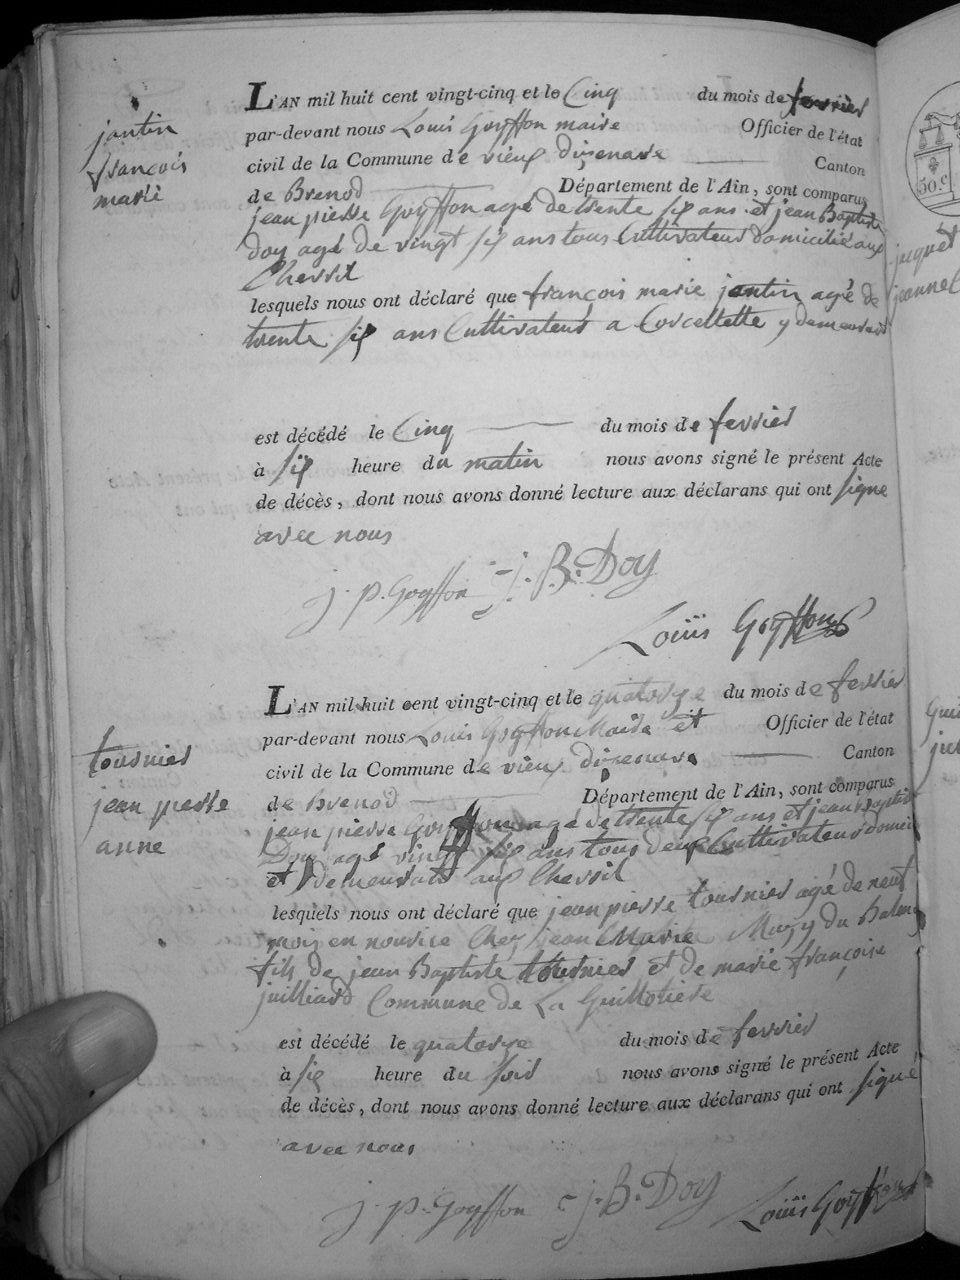 jantin
françois
marie
L'AN mil huit cent vingt-cinq et le Cinq du mois de fevrier
par-devant nous Louis Goyffon maire Officier de l'état
civil de la Commune de vieux disenave Canton
de Brenod Département de l'Ain, sont comparus
jean pierre Goyffon agé de trente six ans et jean Baptiste
Doy agé de vingt six ans tous Cultivateurs domicilié aux
Chevril
lesquels nous ont déclaré que françois marie jantin agé de
trente six ans Cultivateur a Corcellette y demeurant
est décédé le Cinq du mois de fevrier
à six heure du matin nous avons signé le présent Acte
de décès, dont nous avons donné lecture aux déclarans qui ont signe
avec nous
j. p. Goyffon j. B. Doy
Louis Goyffon
tournier
jean pierre
anne
L'AN mil huit cent vingt-cinq et le quatorze du mois de fevrier
par-devant nous Louis Goyffon Maire et Officier de l'état
civil de la Commune de vieux disenave Canton
de Brenod Département de l'Ain, sont comparus
jean pierre Goyffon agé de trente six ans et jean Baptiste
Doy agé vingt six ans tous deux Cultivateurs
et demeurant aux Chevril
lesquels nous ont déclaré que jean pierre tournier agé de neuf
mois en nourice Chez jean Marie Muzy du Balmay
fils de jean Baptiste tournier et de marie françoise
juilliard Commune de La Guillotiere
est décédé le quatorze du mois de fevrier
à six heure du soir nous avons signé le présent Acte
de décès, dont nous avons donné lecture aux déclarans qui ont signé
avec nous
j. p. Goyffon j. B. Doy Louis Goyffon
50.c
juquet
jeannel